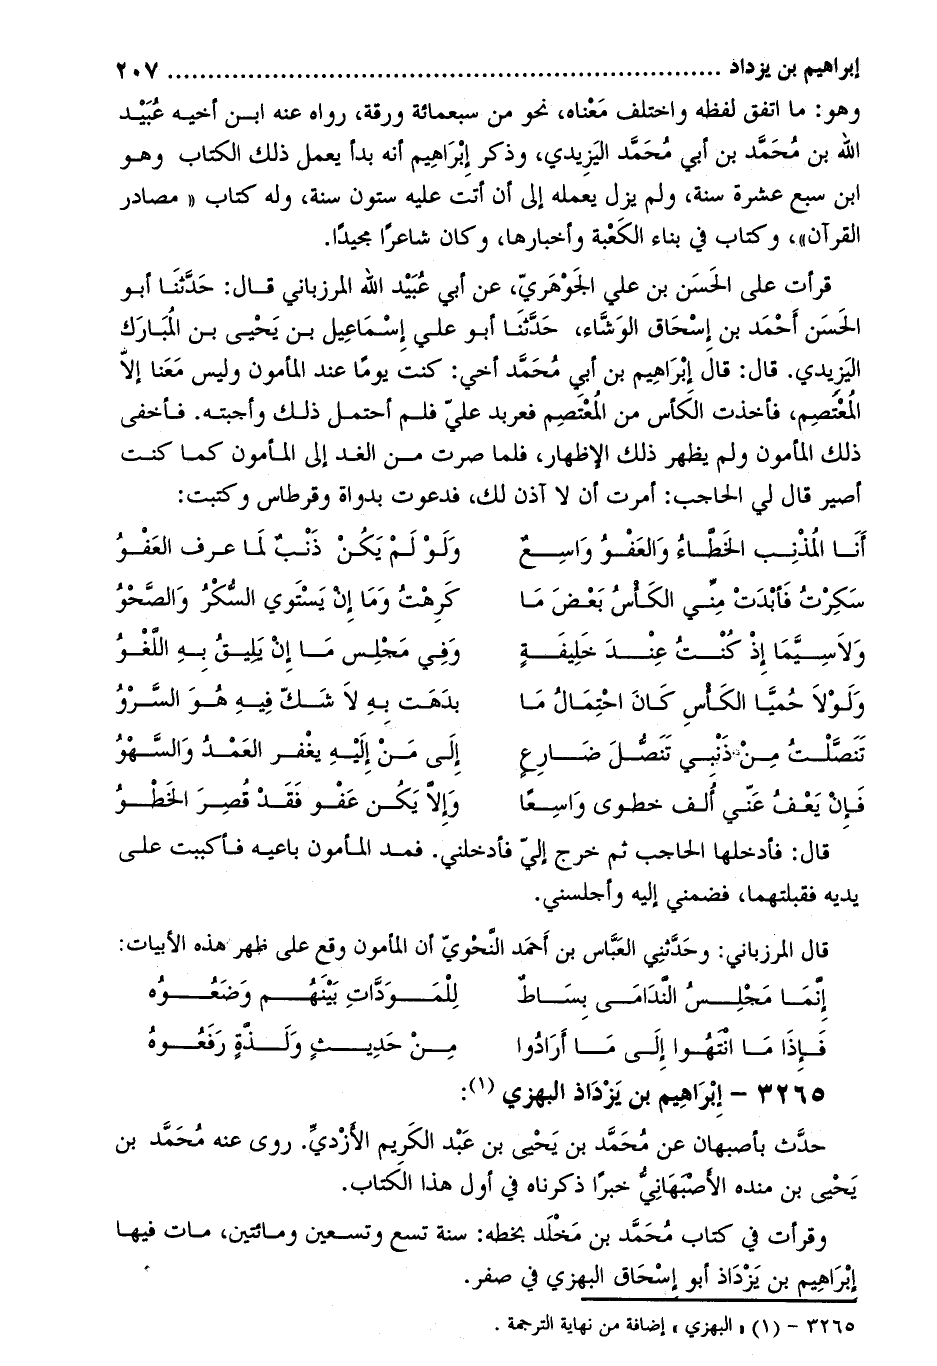 إبراهيم بن يزداذ ........................................................................ ٢٠٧
وهو: ما اتفق لفظه واختلف مَعْناه، نحو من سبعمائة ورقة، رواه عنه ابن أخيه عُبَيْد
الله بن مُحَمَّد بن أبي مُحَمَّد اليَزِيدي، وذكر إبْرَاهِيم أنه بدأ يعمل ذلك الكتاب وهو
ابن سبع عشرة سنة، ولم يزل يعمله إلى أن أتت عليه ستون سنة، وله كتاب « مصادر
القرآن»، وكتاب في بناء الكَعْبة وأخبارها، وكان شاعرًا مجيدًا.
قرأت على الحَسَن بن علي الجَوْهَريّ، عن أبي عُبَيْد الله المرزباني قال: حَدَّثَنَا أبو
الحَسَن أَحْمَد بن إسْحَاق الوَشَّاء، حَدَّثَنَا أبو علي إسْمَاعِيل بن يَحْيى بن المُبَارَك
اليَزِيدي. قال: قال إبْرَاهِيم بن أبي مُحَمَّد أخي: كنت يومًا عند المأمون وليس مَعَنا إلاَّ
المُعْتَصِم، فأخذت الكأس من المُعْتَصِم فعربد عليّ فلم أحتمل ذلك وأجبته. فأخفى
ذلك المأمون ولم يظهر ذلك الإظهار، فلما صرت من الغد إلى المأمون كما كنت
أصير قال لي الحاجب: أمرت أن لا آذن لك، فدعوت بدواة وقرطاس وكتبت:
أَنَا المُذْنِب الخَطَّاءُ وَالعَفْو وَاسِعٌ وَلَوْ لَمْ يَكُنْ ذَنْبٌ لما عرف العَفْوُ
سَكِرْتُ فَأَبْدَتْ مِنِّي الكَأْسُ بَعْضَ مَا كَرِهْتُ وَمَا إِنْ يَسْتَوي السُّكْرُ وَالصَّحْوُ
وَلاَسِيَّمَا إِذْ كُنْتُ عِنْدَ خَلِيفَةٍ وَفِي مَجْلِس مَا إِنْ يَلِيقُ بِهِ اللَّغْوُ
وَلَوْلاَ حُمَيَّا الكَأْسِ كَانَ احْتِمَالُ مَا بدَهَت بِهِ لاَ شَكّ فِيهِ هُوَ السَّرْوُ
تَنَصَّلْتُ مِنْ ذَنْبِي تَنَصُّلَ ضَارِعٍ إِلَى مَنْ إِلَيْهِ يغْفر العَمْدُ وَالسَّهْوُ
فَإِنْ يَعْفُ عَنِّي أُلف خطوى وَاسِعًا وَإِلاَّ يَكُن عَفْو فَقَدْ قُصِرَ الخَطْوُ
قال: فأدخلها الحاجب ثم خرج إليّ فأدخلني. فمد المأمون باعيه فأكببت على
يديه فقبلتهما، فضمني إليه وأجلسني.
قال المرزباني: وحَدَّثَنِي العَبَّاس بن أَحَمَد النَّحْويّ أن المأمون وقع على ظهر هذه الأبيات:
إِنَّمَا مَجْلِسُ النَّدَامَى بِسَاطٌ لِلْمَوَدَّاتِ بَيْنَهُم وَضَعُوهُ
فَإِذَا مَا انْتَهُوا إِلَى مَا أَرَادُوا مِنْ حَدِيثٍ وَلَذَّةٍ رَفَعُوهُ
٣٢٦٥ – إبْرَاهِيم بن يَزْدَاذ البهزي (١):
حدَّث بأصبهان عن مُحَمَّد بن يَحْيى بن عَبْد الكَرِيم الأَزْديِّ. روى عنه مُحَمَّد بن
يَحْيى بن منده الأَصْبَهَانيُّ خبرًا ذكرناه في أول هذا الكَتاب.
وقرأت في كتاب مُحَمَّد بن مَخْلَد بخطه: سنة تسع وتسعين ومائتين، مات فيها
إبْرَاهِيم بن يَزْدَاذ أبو إسْحَاق البهزي في صفر.
٣٢٦٥ – (١) « البهزي » إضافة من نهاية الترجمة .